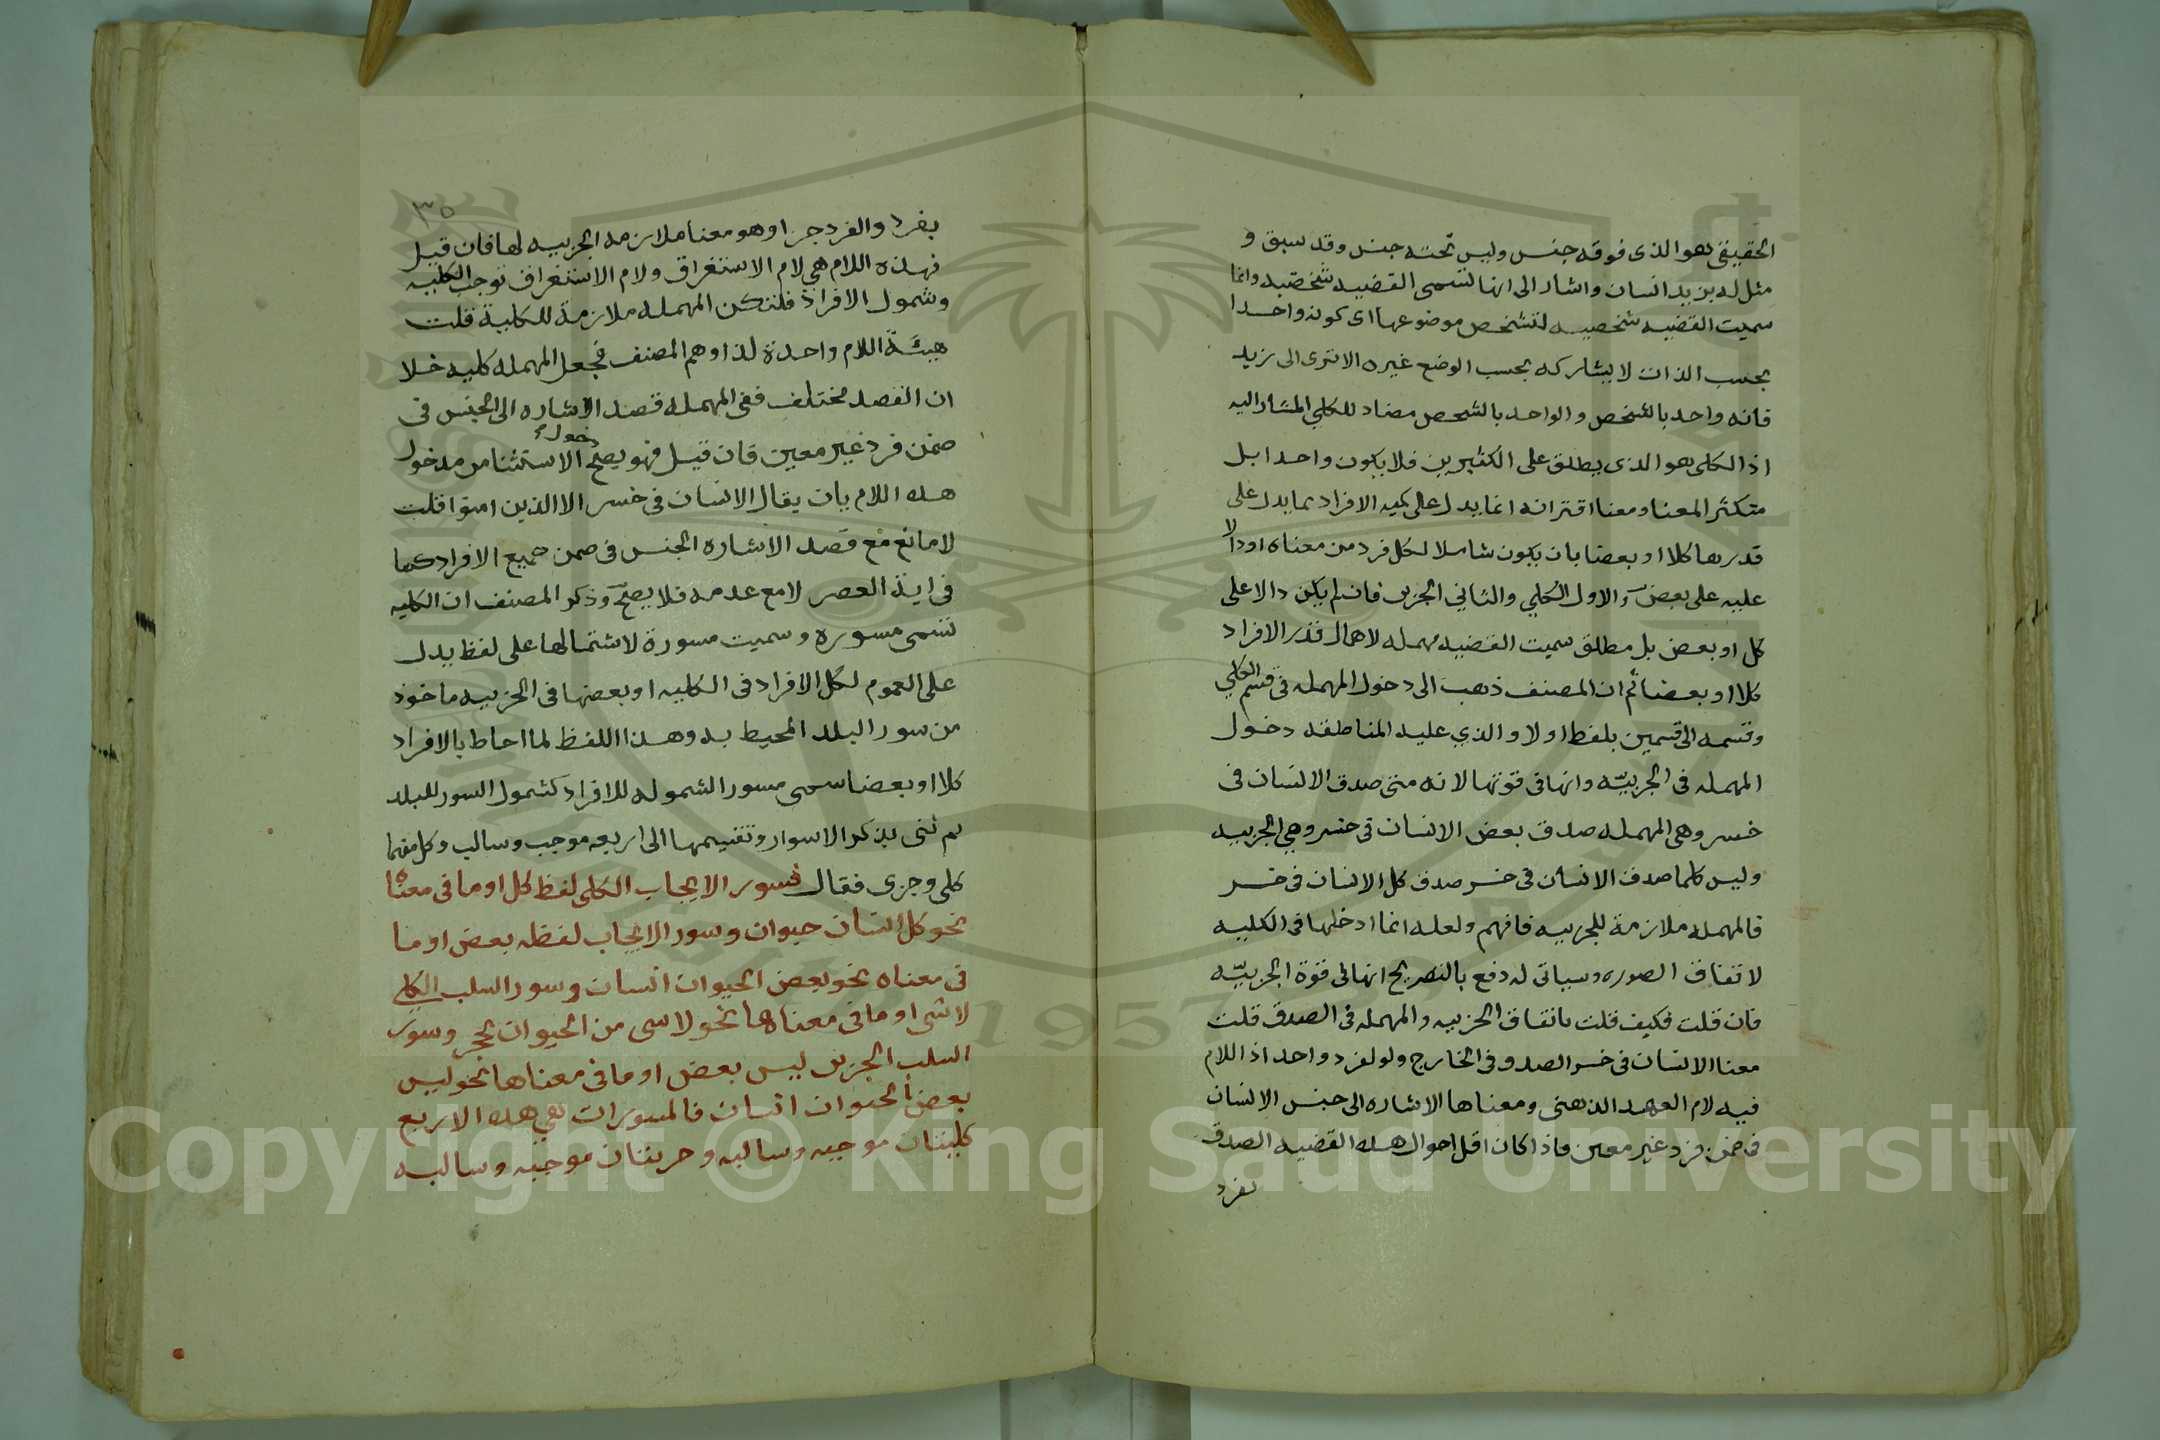 الحقيقي هو الذى فوقه جنس وليس تحته جنس وقد سبق و
مثل له بزيد انسان واشار الى انها تسمى القضيه شخصيه وانما
سميت القضيه شخصيه لتشخص موضوعها اى كونه واحدا
بحسب الذات لا يشاركه بحسب الوضع غيره الا ترى الى زيد
فانه واحد بالشخص والواحد بالشخص مضاد للكلي المشار اليه
اذ الكلى هو الذى يطلق على الكثيرين فلا يكون واحدا بل
متكثر المعنا ومعنا اقترانه انما يدل على كميه الافراد بما يدل على
قدرها كلا او بعضا بان يكون شاملا لكل فرد من معناه او دالا
عليه على بعض والاول الكلي والثاني الجزي فان لم يكن دالا على
كل او بعض بل مطلق سميت القضيه مهمله لاهمال قدر الافراد
كلا او بعضا ثم ان المصنف ذهب الى دخول المهمله فى قسم الكلي
وقسمه الى قسمين بلفظ اولا والذي عليه المناطقه دخول
المهمله فى الجزييه وانها فى قوتها لانه متى صدق الانسان فى
خسر وهى المهمله صدق بعض الانسان فى خسر وهي الجزييه
وليس كلما صدق الانسان فى خسر صدق كل الانسان فى خسر
فالمهمله ملازمة للجزييه فافهم ولعله انما ادخلها فى الكليه
لاتفاق الصوره وسياتى له دفع بالتصريح انها فى قوة الجزييه
فان قلت فكيف قلت باتفاق الجزييه والمهمله فى الصدق قلت
معنا الانسان فى خسر الصدق فى الخارج ولو لفرد واحد اذ اللام
فيه لام العهد الذهنى ومعناها الاشاره الى جنس الانسان
فى ضمن فرد غير معين فاذا كان اقل احوال هذه القضيه الصدق
بفرد
٣٥
بفرد والفرد جزا وهو معنا ملازمه الجزييه لها فان قيل
فهذه اللام هي لام الاستغراق ولام الاستغراق توجب الكليه
وشمول الافراد فلتكن المهمله ملازمة للكلية قلت
هيئة اللام واحدة لذا وهم المصنف فجعل المهمله كليه خلا
ان القصد مختلف ففى المهمله قصد الاشاره الى الجنس فى
ضمن فرد غير معين فان قيل فهو يصح دخول الاستثنا من مدخول
هذه اللام بان يقال الانسان فى خسر الا الذين امنوا قلت
لا مانع مع قصد الاشاره الجنس فى ضمن جميع الافراد كما
فى اية العصر لا مع عدمه فلا يصح وذكر المصنف ان الكليه
تسمى مسوره وسميت مسورة لاشتمالها على لفظ يدل
على العموم لكل الافراد فى الكليه او بعضها فى الجزييه ماخوذ
من سور البلد المحيط به وهذا اللفظ لما احاط بالافراد
كلا او بعضا سمى مسورا لشموله للافراد كشمول السور للبلد
ثم ثنى بذكر الاسوار وتقسيمها الى اربعه موجب وسالب وكل منهما
كلى وجزى فقال فسور الايجاب الكلى لفظ كل او ما فى معناه
نحو كل انسان حيوان وسور الايجاب لفظه بعض او ما
فى معناه نحو بعض الحيوان انسان وسور السلب الكلي
لا شى او ما فى معناها نحو لا شى من الحيوان بحجر وسور
السلب الجزى ليس بعض او ما فى معناها نحو ليس
بعض الحيوان انسان فالمسورات هي هذه الاربع
كليتان موجبه وسالبه وجزيتان موجبه وسالبه
1957
Copyright © King Saud University